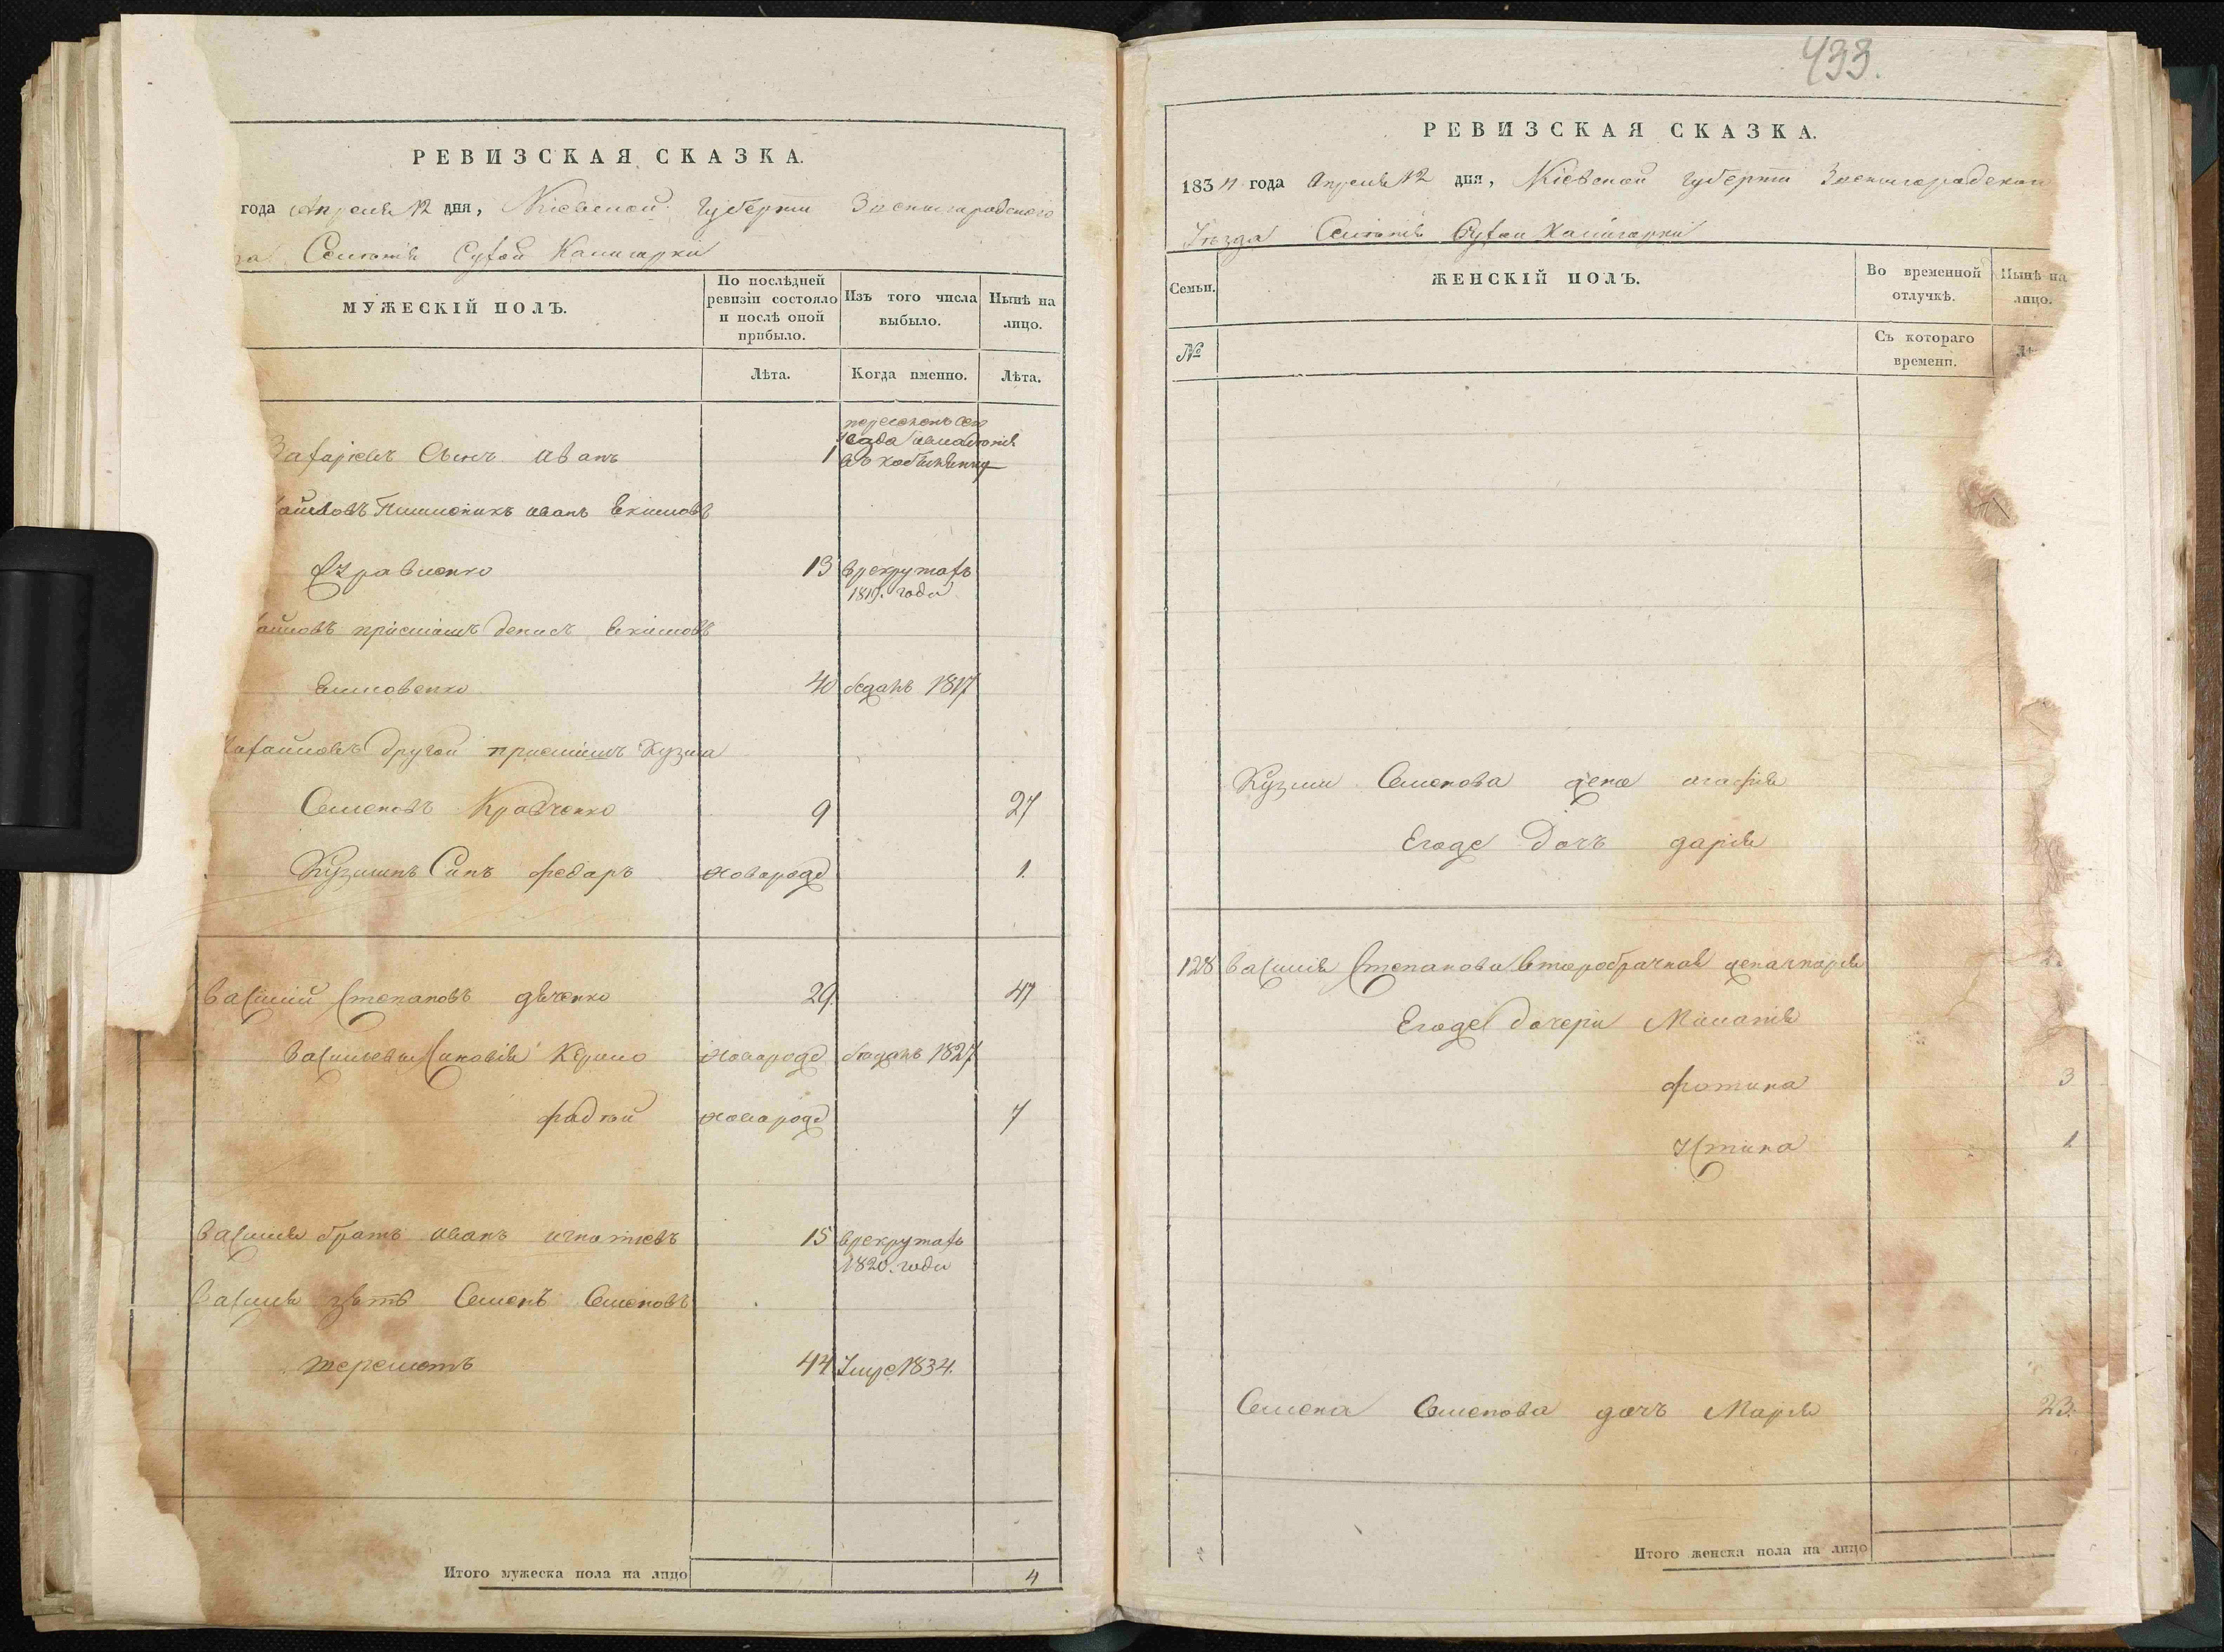 РЕВИЗСКАЯ СКАЗКА.
года Апреля 12 дня, Кіевской Губерніи Звенигородского
Селенія Сухой Калигарки
МУЖЕСКІЙ ПОЛЪ.
По послѣдней ревизіи состояло и послѣ оной прибыло.
Изъ того числа выбыло.
Нынѣ на лицо.
Лѣта.
Когда именно.
Лѣта.
Захаріевъ Сынъ Иванъ 1
иванъ Екимовъ
13 врекрутахъ
1819. года
приемышъ денисъ Екимовъ
40 бѣданъ 1817
другой приемышъ Кузма
Семеновъ Кравченко 9 27
Кузминъ Синъ федаръ новорожд 1.
Василий Степановъ дѣченко 29. 47
Васильевы Синовія новорожд 1827
фадѣй новорожд 7
Василія братъ иванъ игнатіевъ 15 врекрутахъ
1820. года
Василія зять Семенъ Семеновъ
44 Умре 1834.
Итого мужеска пола на лицо 4
433.
РЕВИЗСКАЯ СКАЗКА.
1834 года Апреля 12 дня, Кіевской Губерніи Звенигородского
Уезда Селенія Сухой Калигарки
Семьи.
ЖЕНСКІЙ ПОЛЪ.
Во временной отлучкѣ.
Нынѣ на лицо.
№
Съ котораго времени.
Кузми Семенова жена агафія
Егоже дочъ дарія
128 Василія Степанова второбрачная жена марія
Егоже дочери Миланія
фотина 3
Устина 1.
Семена Семенова дочъ Марія 23.
Итого женска пола на лицо